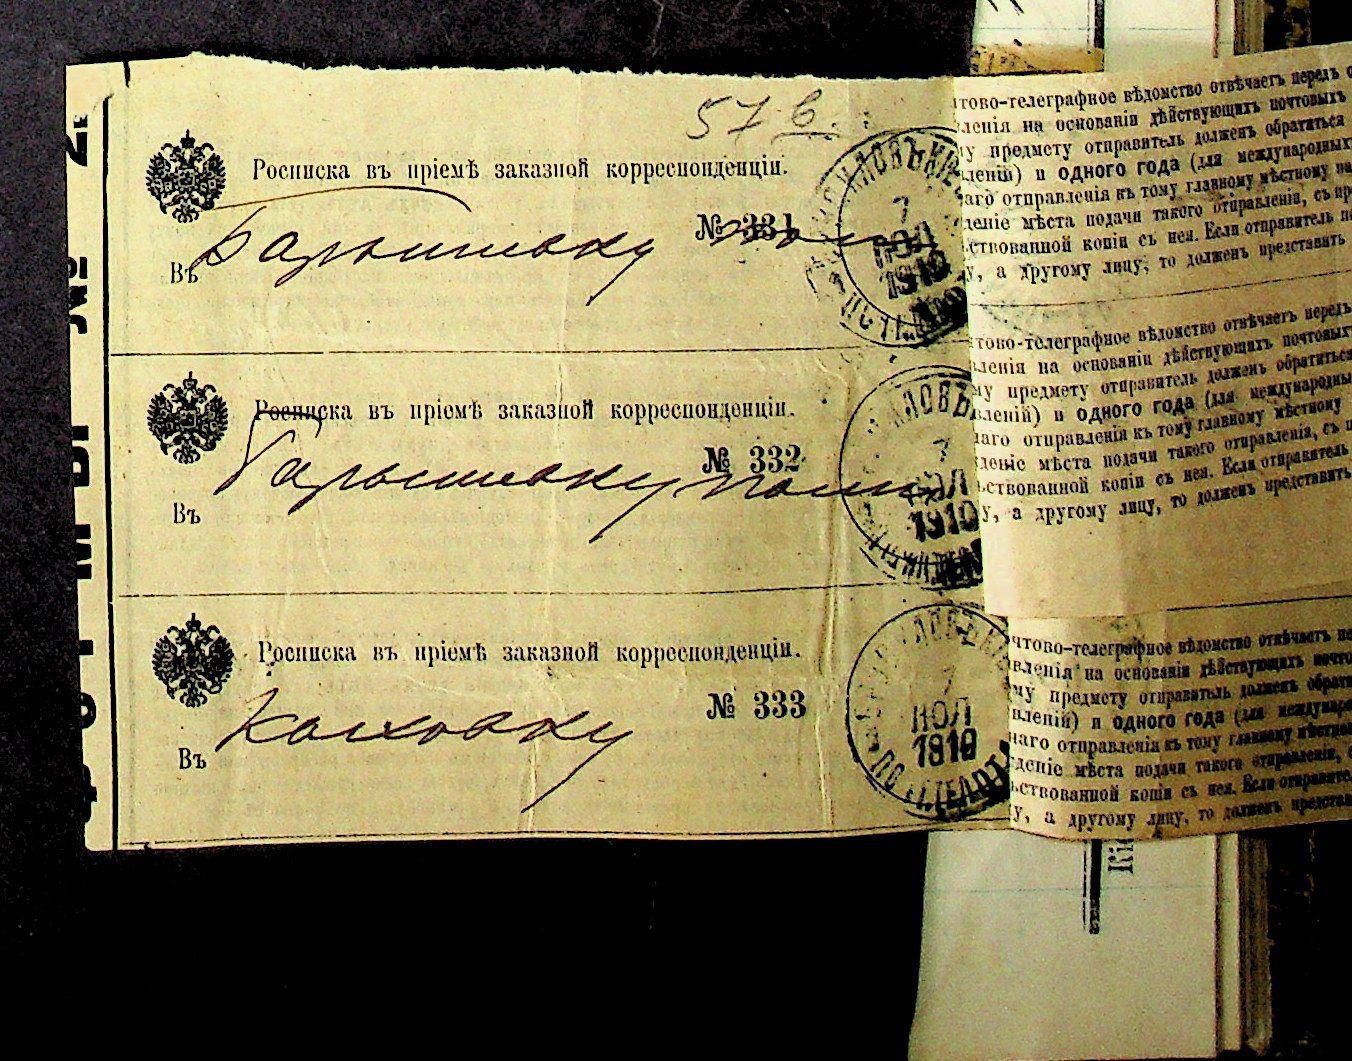 57 в.
Росписка въ пріемѣ заказной корреспонденціи.
№ 331
Въ Барышевку
7
ІЮЛ
1910
Росписка въ пріемѣ заказной корреспонденціи.
№ 332
Въ Барышевку
7
1910
Росписка въ пріемѣ заказной корреспонденціи.
№ 333
Въ
7
ІЮЛ
1910
тово-телеграфное вѣдомство отвѣчаетъ передъ
ленія на основаніи дѣйствующихъ почтовыхъ
у предмету отправитель долженъ обратиться
леній) и одного года (для международныхъ
аго отправленія къ тому главному мѣстному
деніе мѣста подачи такого отправленія, съ
ствованной копіи съ нея. Если отправитель
у, а другому лицу, то долженъ представить
тово-телеграфное вѣдомство отвѣчаетъ передъ
вленія на основаніи дѣйствующихъ почтовыхъ
му предмету отправитель долженъ обратиться
леній) и одного года (для международны
наго отправленія къ тому главному мѣстному
деніе мѣста подачи такого отправленія, съ
ьствованной копіи съ нея. Если отправитель
у, а другому лицу, то долженъ представить
чтово-телеграфное вѣдомство отвѣчаетъ пе
вленія на основаніи дѣйствующихъ почто
му предмету отправитель долженъ обрати
вленій) и одного года (для междунаро
наго отправленія къ тому главному мѣстно
деніе мѣста подачи такого отправленія,
ьствованной копіи съ нея. Если отправите
у, а другому лицу, то долженъ представ